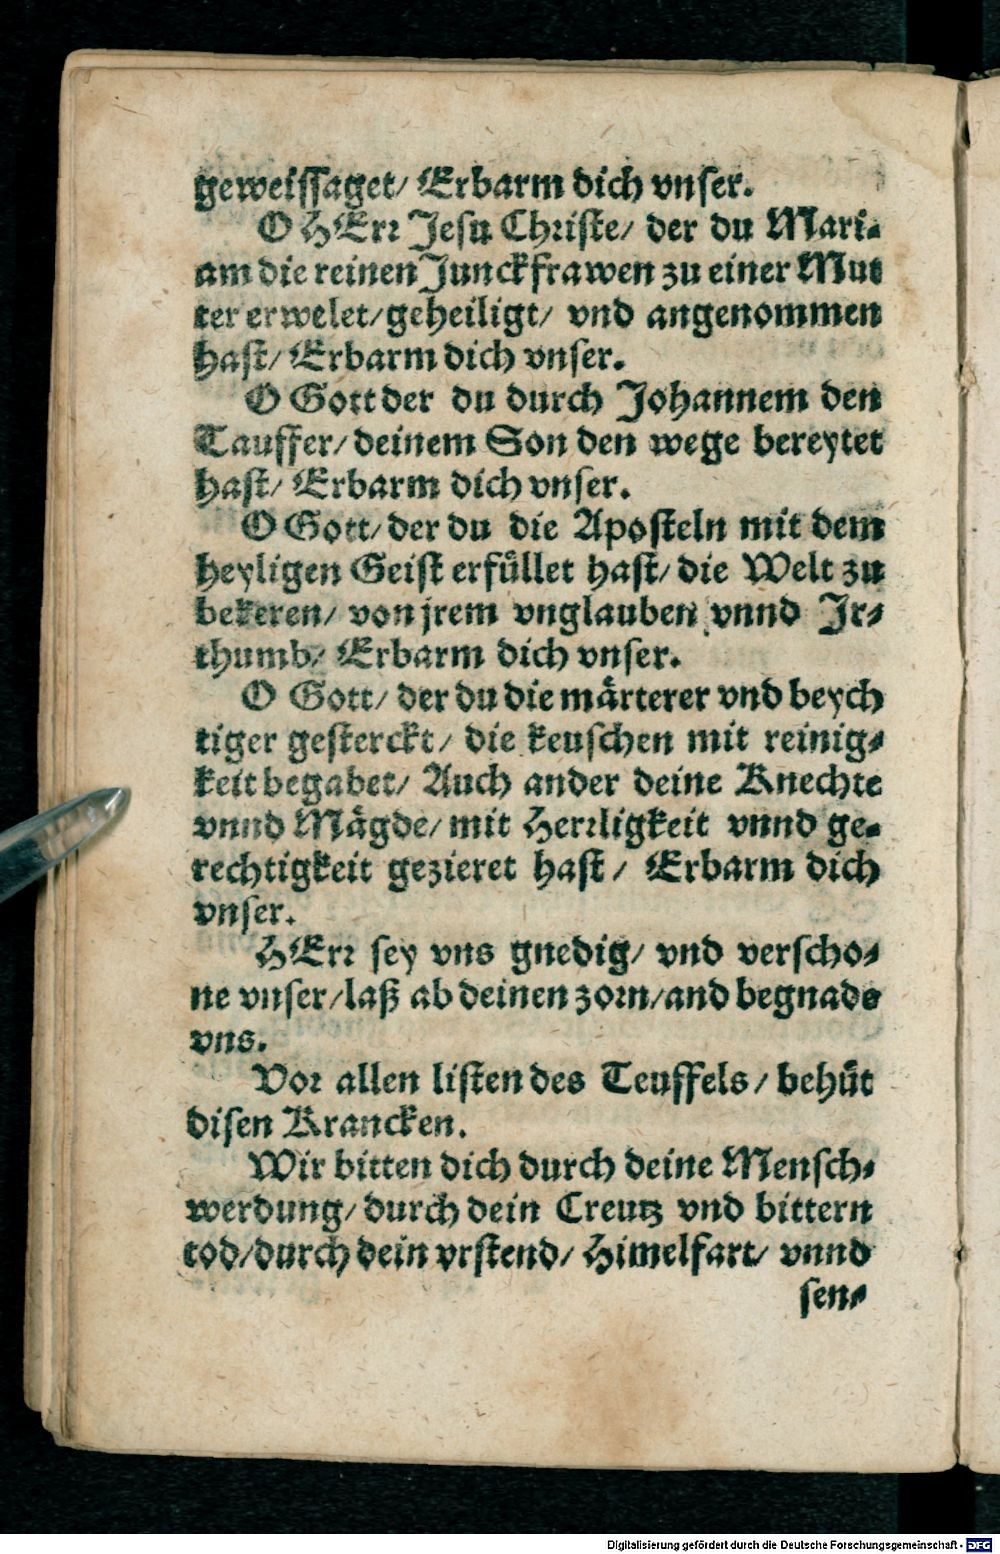 geweissaget/ Erbarm dich vnser.
O HErr Jesu Christe/ der du Mari-
am die reinen Junckfrawen zu einer Mut
ter erwelet/ geheiligt/ vnd angenommen
hast/ Erbarm dich vnser.
O Gott der du durch Johannem den
Tauffer/ deinem Son den wege bereytet
hast/ Erbarm dich vnser.
O Gott/ der du die Aposteln mit dem
heyligen Geist erfüllet hast/ die Welt zu
bekeren/ von jrem vnglauben vnnd Jr-
thumb/ Erbarm dich vnser.
O Gott/ der du die märterer vnd beych
tiger gesterckt/ die keuschen mit reinig-
keit begabet/ Auch ander deine Knechte
vnnd Mägde/ mit Herrligkeit vnnd ge-
rechtigkeit gezieret hast/ Erbarm dich
vnser.
HErr sey vns gnedig/ vnd verscho-
ne vnser/ laß ab deinen zorn/ and begnade
vns.
Vor allen listen des Teuffels/ behüt
disen Krancken.
Wir bitten dich durch deine Mensch-
werdung/ durch dein Creutz vnd bittern
tod/ durch dein vrstend/ Himelfart/ vnnd
sen-
Digitalisierung gefördert durch die Deutsche Forschungsgemeinschaft - DFG